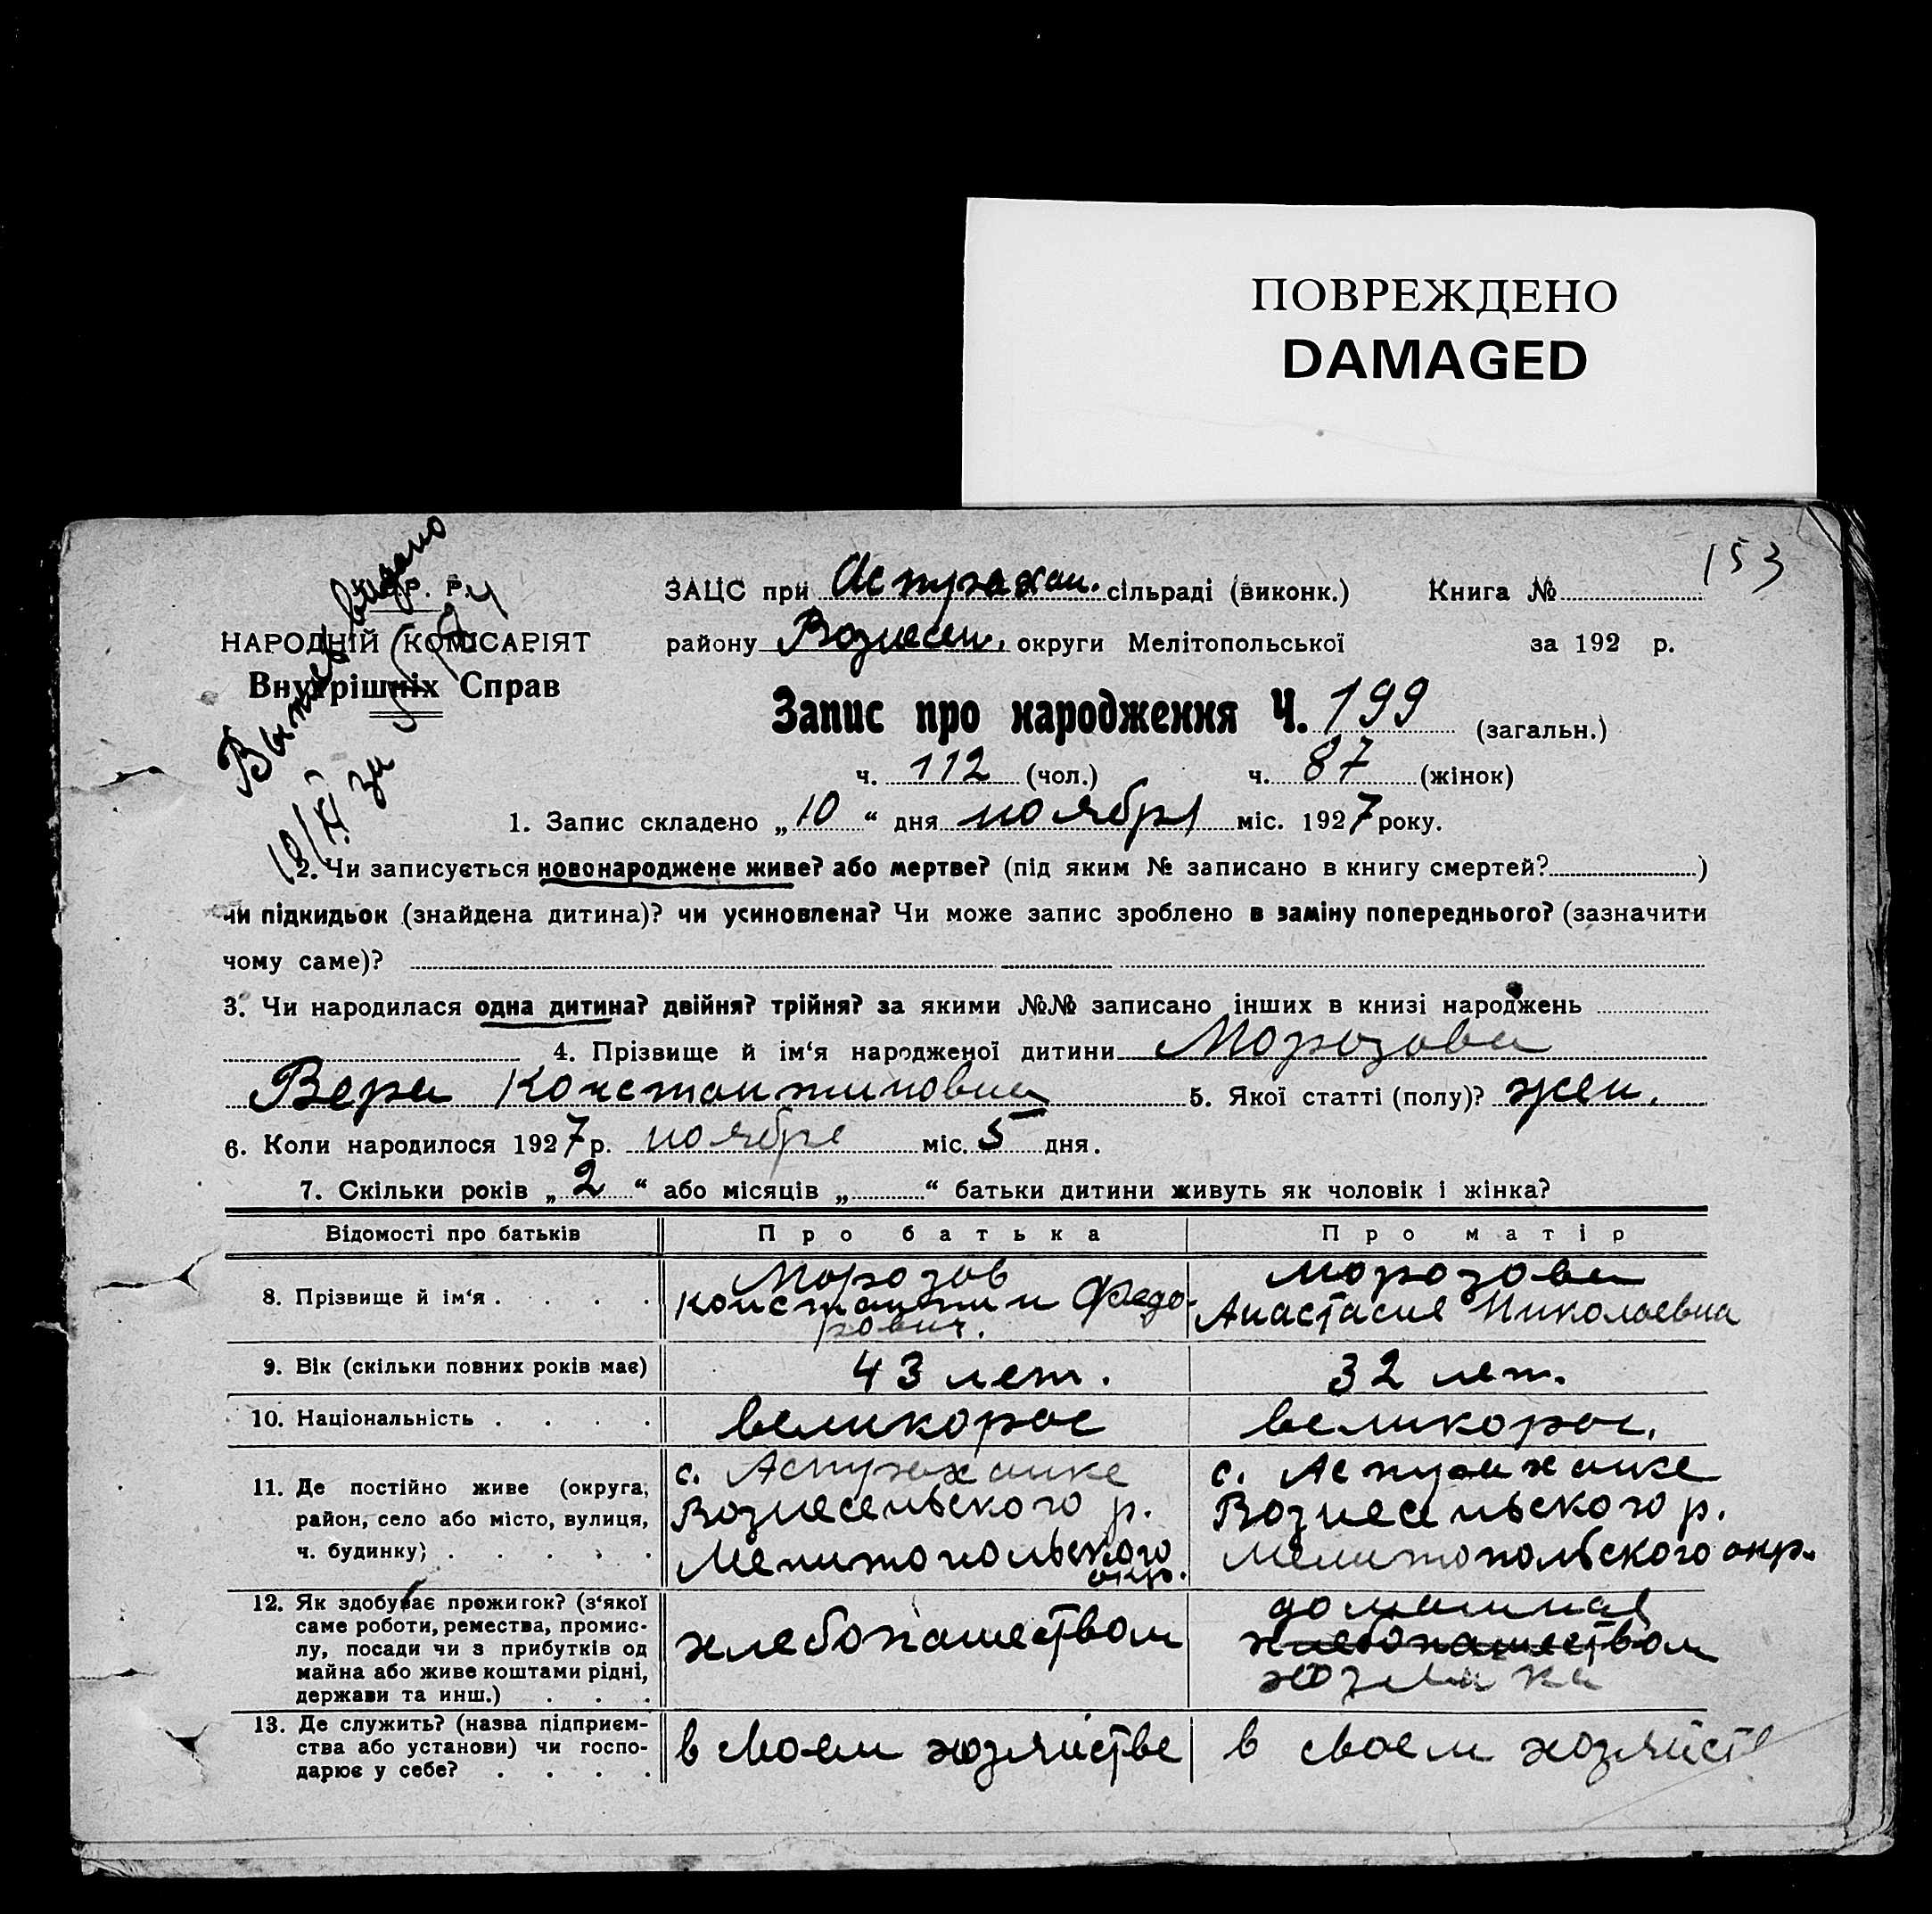 ПОВРЕЖДЕНО
DAMAGED
153
Выпись видано
ЗАЦС при Астрахан. сільраді (виконк.) Книга №
НАРОДНІЙ КОМІСАРІЯТ
району Вознесен. округи Мелітопольської за 192 р.
Внутрішніх Справ
Запис про народження Ч. 199 (загальн.)
ч. 112 (чол.) ч. 87 (жінок)
1. Запис складено „10“ дня ноября міс. 1927 року.
2. Чи записується новонароджене живе? або мертве? (під яким № записано в книгу смертей?)
чи підкидьок (знайдена дитина)? чи усиновлена? Чи може запис зроблено в заміну попереднього? (зазначити
чому саме)?
3. Чи народилася одна дитина? двійня? трійня? за якими №№ записано інших в книзі народжень
4. Прізвище й ім‘я народженої дитини Морозова
Вера Константиновна 5. Якої статті (полу)? жен.
6. Коли народилося 1927 р. ноября міс. 5 дня.
7. Скільки років „2“ або місяців „ “ батьки дитини живуть як чоловік і жінка?
Відомості про батьків Про батька Про матір
8. Прізвище й ім‘я . . . .
Морозов
Константин Федо-
рович.
Морозова
Анастасия Николаевна
9. Вік (скільки повних років має) 43 лет. 32 лет.
10. Національність . . . . великорос великорос.
11. Де постійно живе (округа,
район, село або місто, вулиця,
ч. будинку) . . . . .
с. Астраханке
Вознесеньского р.
Мелитопольского
окр.
с. Астраханке
Вознесеньского р.
Мелитопольского окр.
12. Як здобуває прожиток? (з‘якої
саме роботи, ремества, промис-
лу, посади чи з прибутків од
майна або живе коштами рідні,
держави та инш.) . . .
хлебопашеством
домашная
хлебопашеством
хозяйка
13. Де служить? (назва підприєм-
ства або установи) чи госпо-
дарює у себе? . . . .
в своем хозяйстве
в своем хозяйстве